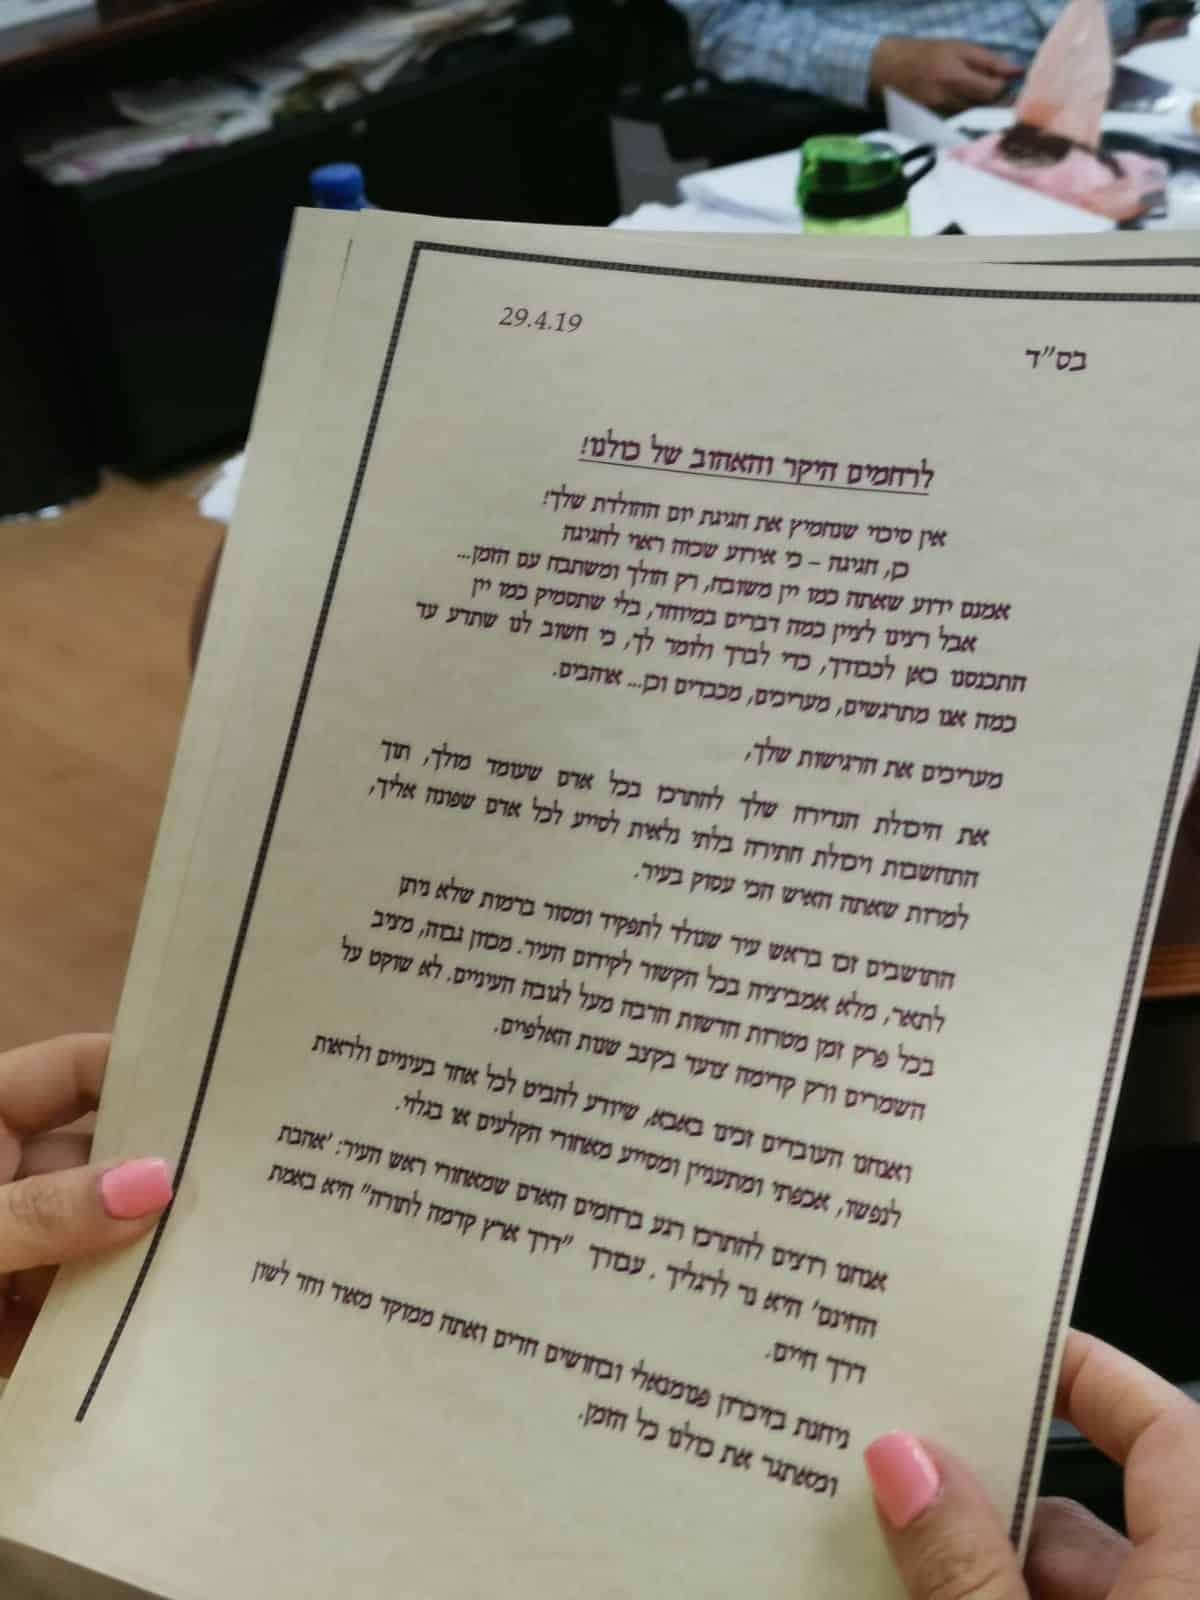 בס"ד
29.4.19
לרחמים היקר והאהוב של כולנו!
אין סיכוי שנחמיץ את חגיגת יום ההולדת שלך!
כן, חגיגה – כי אירוע שכזה ראוי לחגיגה
אמנם ידוע שאתה כמו יין משובח, רק הולך ומשתבח עם הזמן...
אבל רצינו לציין כמה דברים במיוחד, בלי שתסמיק כמו יין
התכנסנו כאן לכבודך, כדי לברך ולומר לך, כי חשוב לנו שתדע עד
כמה אנו מתרגשים, מעריכים, מכבדים וכן... אוהבים.
מעריכים את הרגישות שלך,
את היכולת הנדירה שלך להתרכז בכל אדם שעומד מולך, תוך
התחשבות ויכולת חתירה בלתי נלאית לסייע לכל אדם שפונה אליך,
למרות שאתה האיש הכי עסוק בעיר.
התושבים זכו בראש עיר שנולד לתפקיד ומסור ברמות שלא ניתן
לתאר, מלא אמביציה בכל הקשור לקידום העיר. מכוון גבוה, מציב
בכל פרק זמן מטרות חדשות הרבה מעל לגובה העיניים. לא שוקט על
השמרים ורק קדימה צועד בקצב שנות האלפיים.
ואנחנו העובדים זכינו באבא, שיודע להביט לכל אחד בעיניים ולראות
לנפשו, אכפתי ומתעניין ומסייע מאחורי הקלעים או בגלוי.
אנחנו רוצים להתרכז רגע ברחמים האדם שמאחורי ראש העיר: 'אהבת
החינם' היא נר לרגליך . עבורך "דרך ארץ קדמה לתורה" היא באמת
דרך חיים.
ניחנת בזיכרון פנומנאלי ובחושים חדים ואתה ממוקד מאוד וחד לשון
ומאתגר את כולנו כל הזמן.